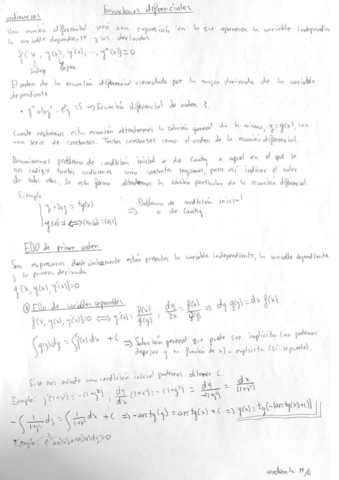 Ecuaciones diferenciales
ordinarias
Una ecuación diferencial será una expresión en la que aparecen la variable independiente
la variable dependiente y sus derivadas
f(x, y(x), y'(x), ..., yⁿ(x))=0
El orden de la ecuación diferencial vienen dado por la mayor derivada de la variable
dependiente
=5 → Ecuación diferencial de orden 2.
Cuando resolvemos esta ecuación obtendremos la solución general de la misma, y=y(x), con
una serie de constantes. Tantas constantes como el orden de la ecuación diferencial.
Denominamos problema de condición inicial o de Cauchy a aquel en el que se
nos indique tantas condiciones como constantes tengamos, para así indicar el valor
de todas ellas. De esta forma obtendremos la solución particular de la ecuación diferencial.
Ejemplo:
Problema de condición inicial
o de Cauchy
EDO de primer orden
Son expresiones donde únicamente están presentes la variable independiente, la variable dependiente
y su primera derivada
f(x, y(x), y'(x))=0
① EDO de variables separables
f(x, y(x), y'(x))=0 ⟺ y'(x)= f(x)/g(y) ; dy/dx = f(x)/g(y) ⇒ dy g(y) = dx f(x)
∫g(y)dy = ∫f(x)dx + C ⇒ Solución general que puede ser implícita (no podemos
despejar y en función de x) o explícita (si se puede).
Si se nos añade una condición inicial podremos obtener C.
Ejemplo: y'(1+x²)=-(1+y²); dy/dx (1+x²)=-(1+y²) ⇒ dy/-(1+y²) = dx/(1+x²)
-∫ 1/(1+y²) dy = ∫ 1/(1+x²) dx + C ⇒ -arctg(y) = arctg(x) + C ⇒ y(x) = tg(-(arctg(x)+C))
Ejemplo: